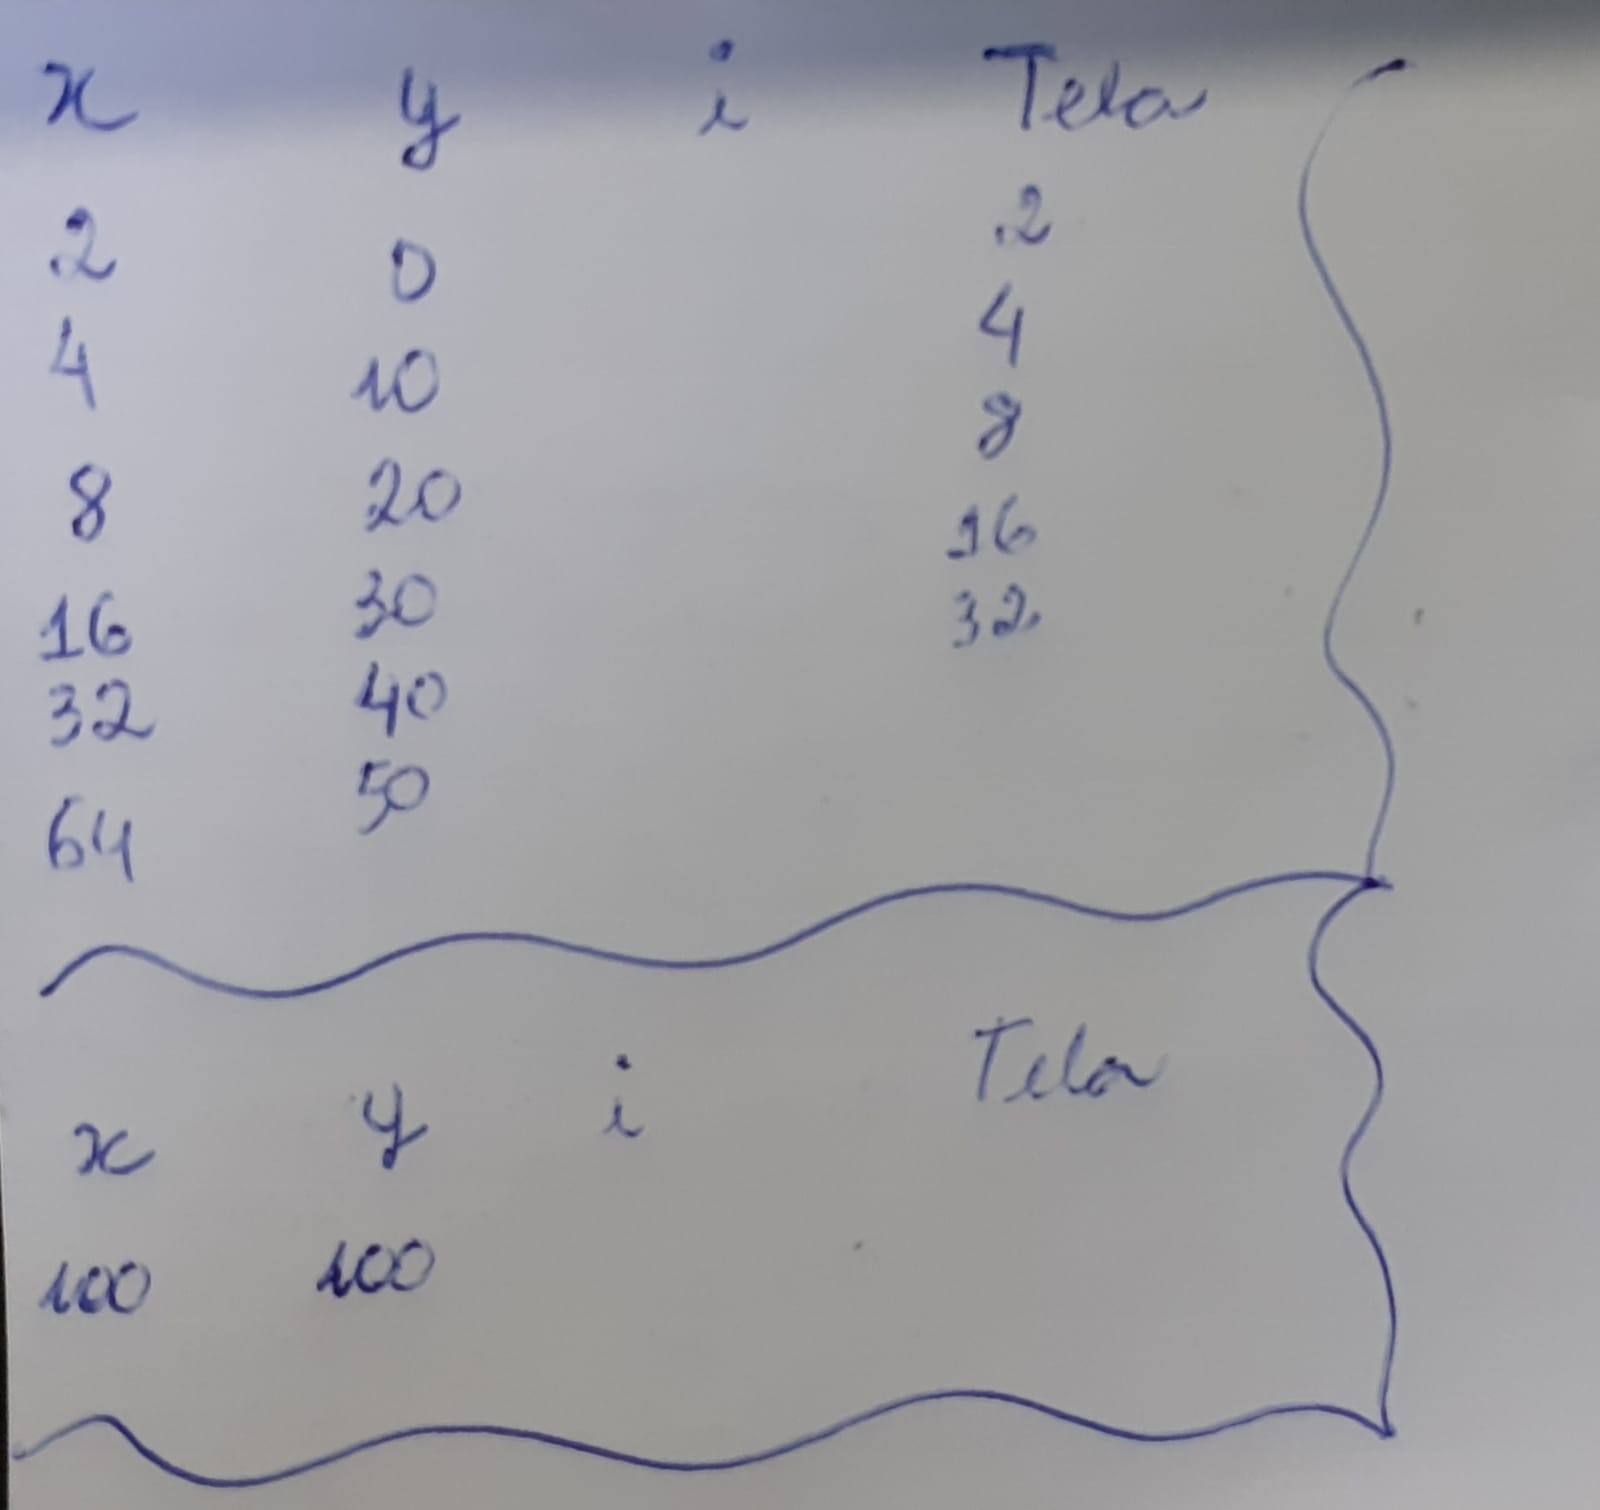 x y i Tela
2 0 2
4 10 4
8 20 8
16 30 16
32 40 32
64 50
x y i Tela
100 100